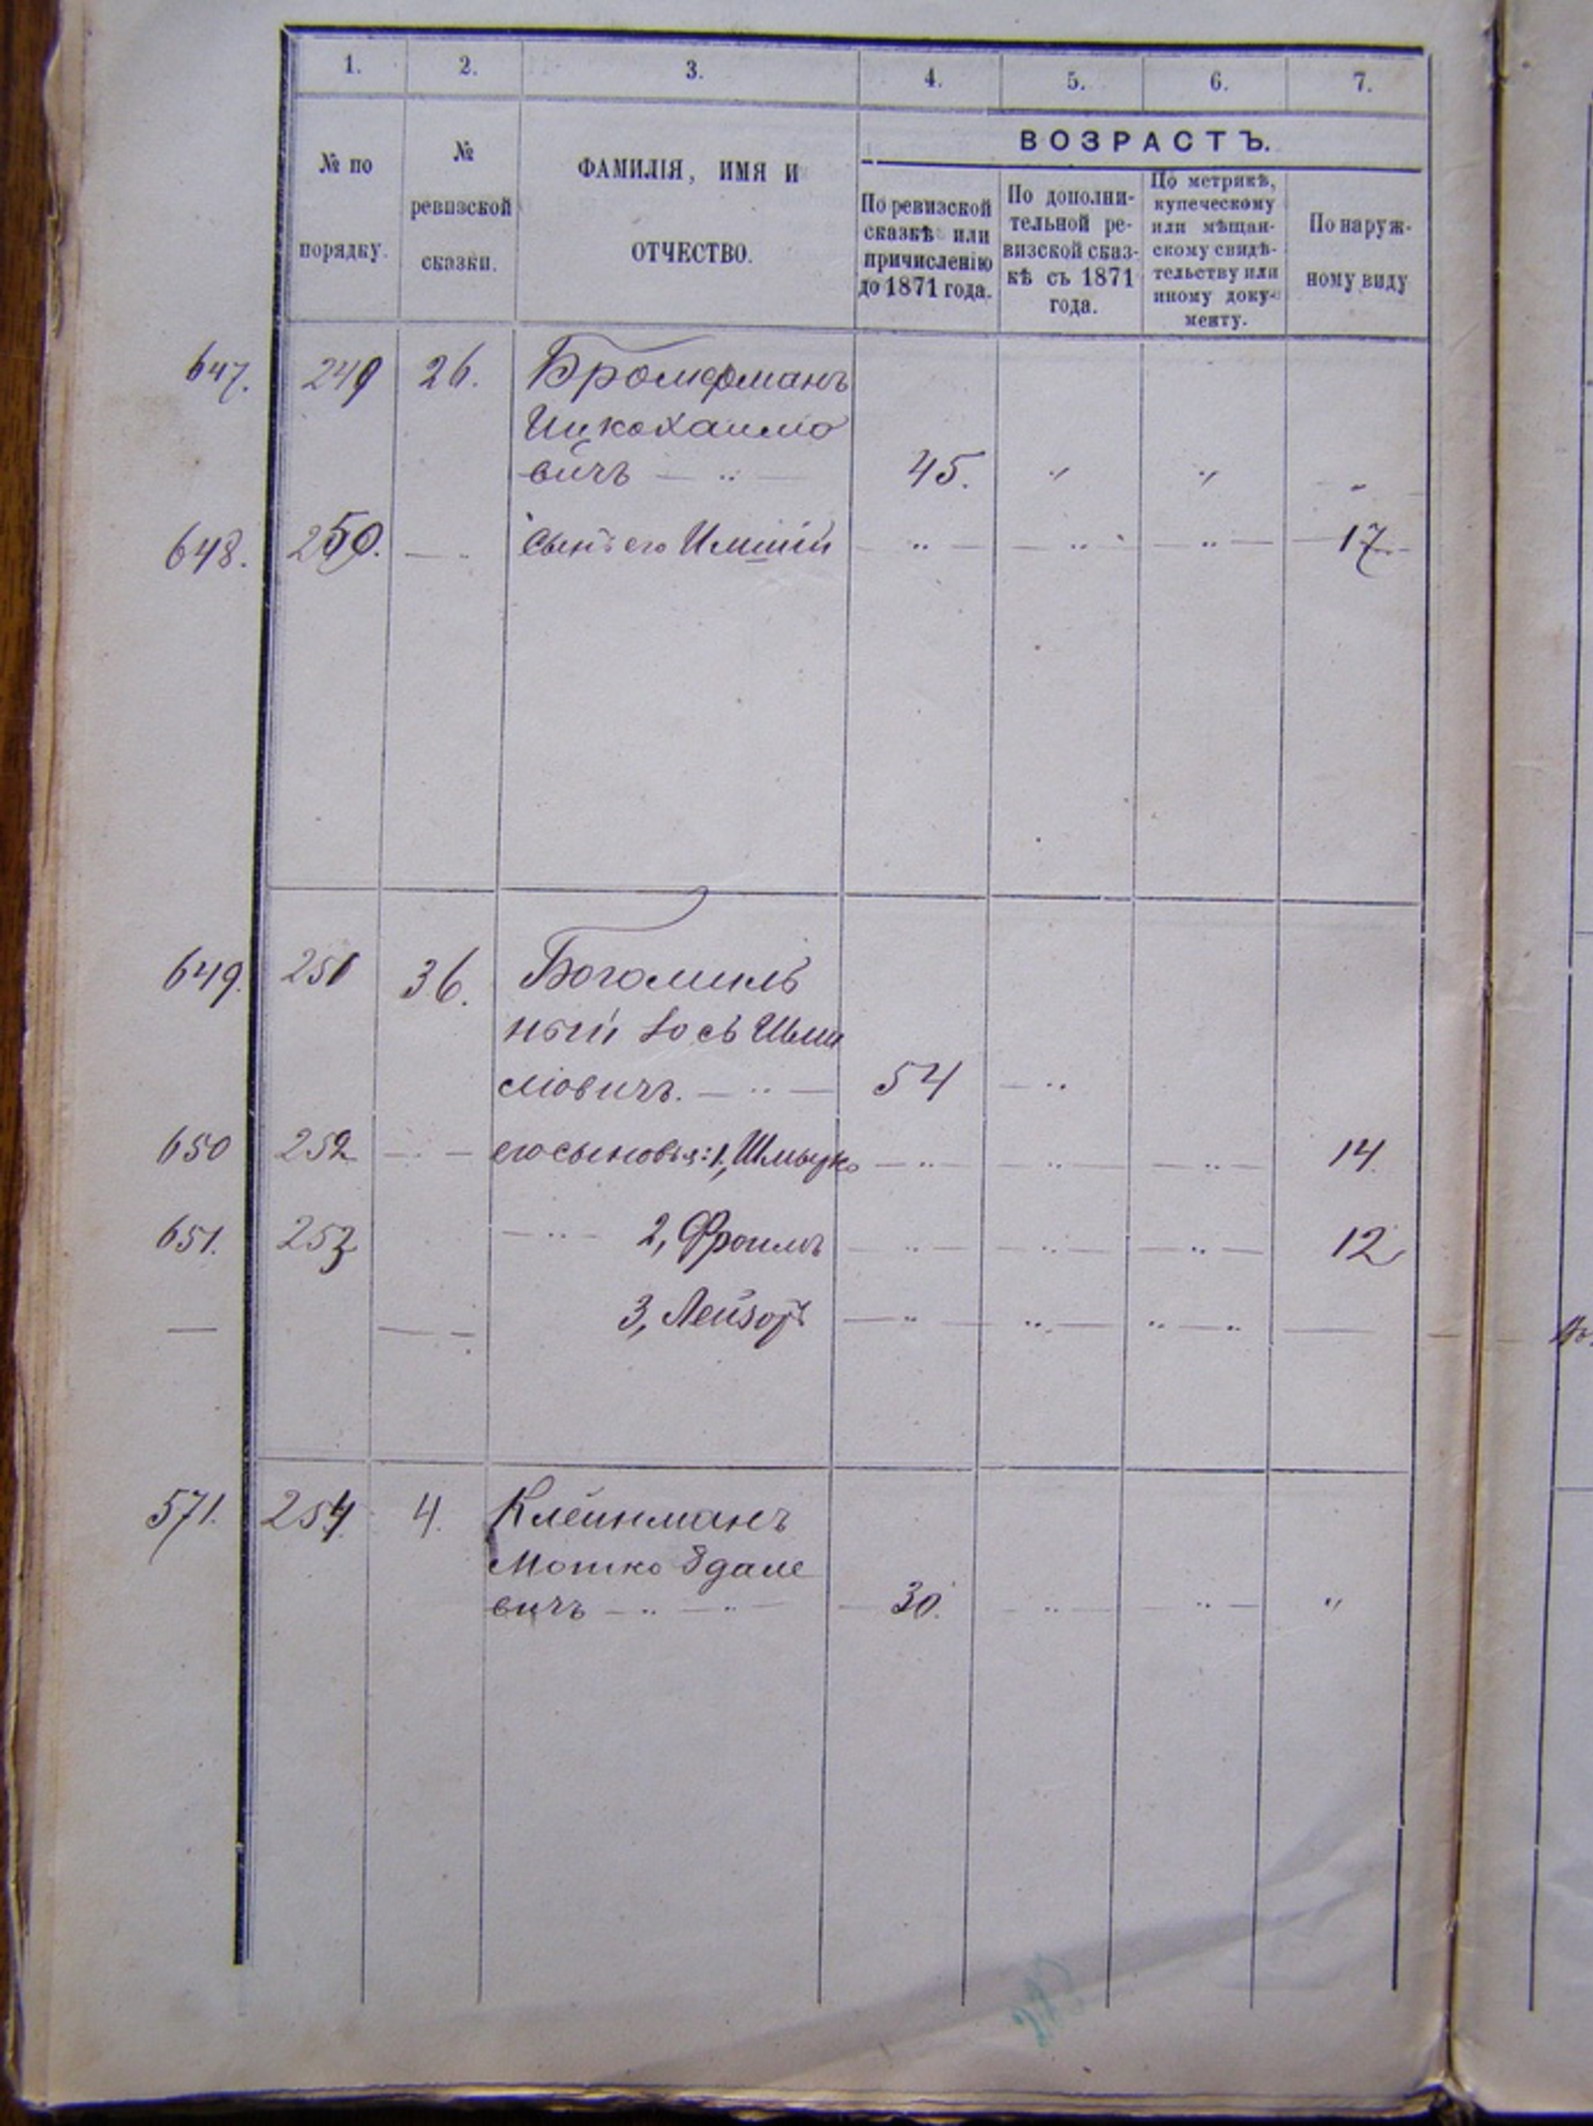 1. 2. 3. 4. 5. 6. 7.
№ по порядку.
№ ревизской сказки.
ФАМИЛІЯ, ИМЯ И
ОТЧЕСТВО.
ВОЗРАСТЪ.
По ревизской
сказкѣ или
причисленію
до 1871 года.
По дополни-
тельной ре-
визской сказ-
кѣ съ 1871
года.
По метрикѣ,
купеческому
или мѣщан-
скому свидѣ-
тельству или
иному доку-
менту.
По наруж-
ному виду
647. 249 26. Бромфманъ
Ицкохаимо
вичъ — „ — 45. „ „ „
648. 250. — сынъ его — „ — — „ — — „ — 17
649. 251 36. Богомиль
ный Іось Шми
ліовичъ. — „ — 54 — „
650 252 — „ — его сыновья: 1, Шмылко — „ — — „ — — „ — 14.
651. 253 — „ — 2, Фроимъ — „ — — „ — — „ — 12
— — — 3, Лейзоръ — „ — „ — „ — „ —
571. 254 4. Клейнманъ
Мотко
вичъ — „ — „ — 30. — „ — — „ — „